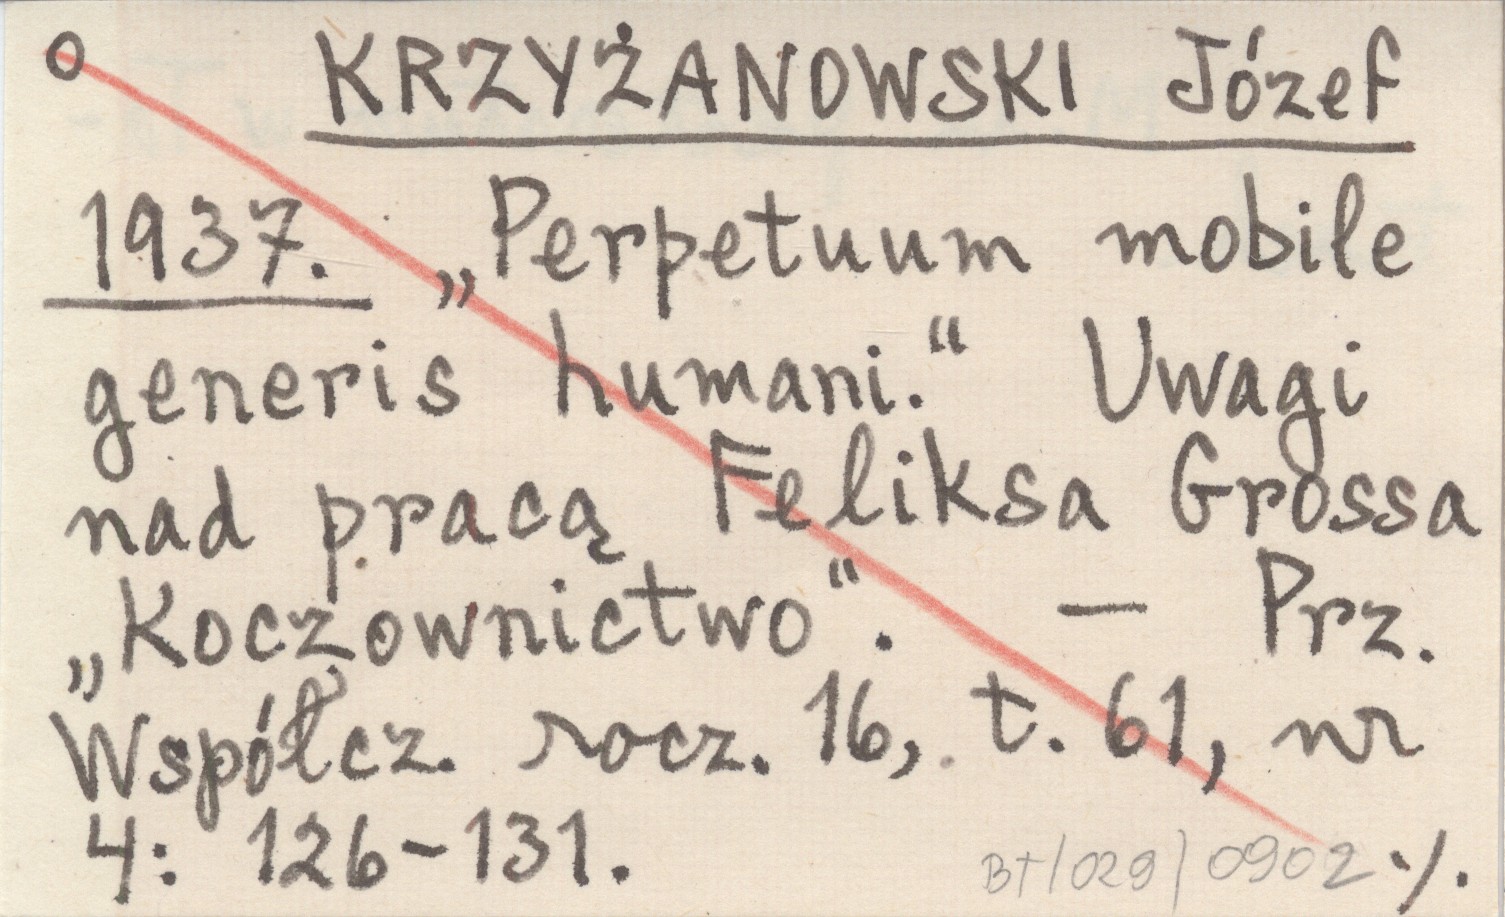 o KRZYŻANOWSKI Józef
1937. „Perpetuum mobile
generis humani.“ Uwagi
nad pracą Feliksa Grossa
„Koczownictwo“. — Prz.
Współcz. rocz. 16, t. 61, nr
4: 126-131.
BT/029/0902 ·/.